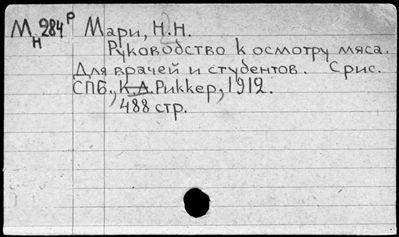 М 284 р Мари, Н.Н.
Н
Руководство к осмотру мяса.
Для врачей и студентов. С рис.
СПБ., К.Л. Риккер, 1912.
488 стр.